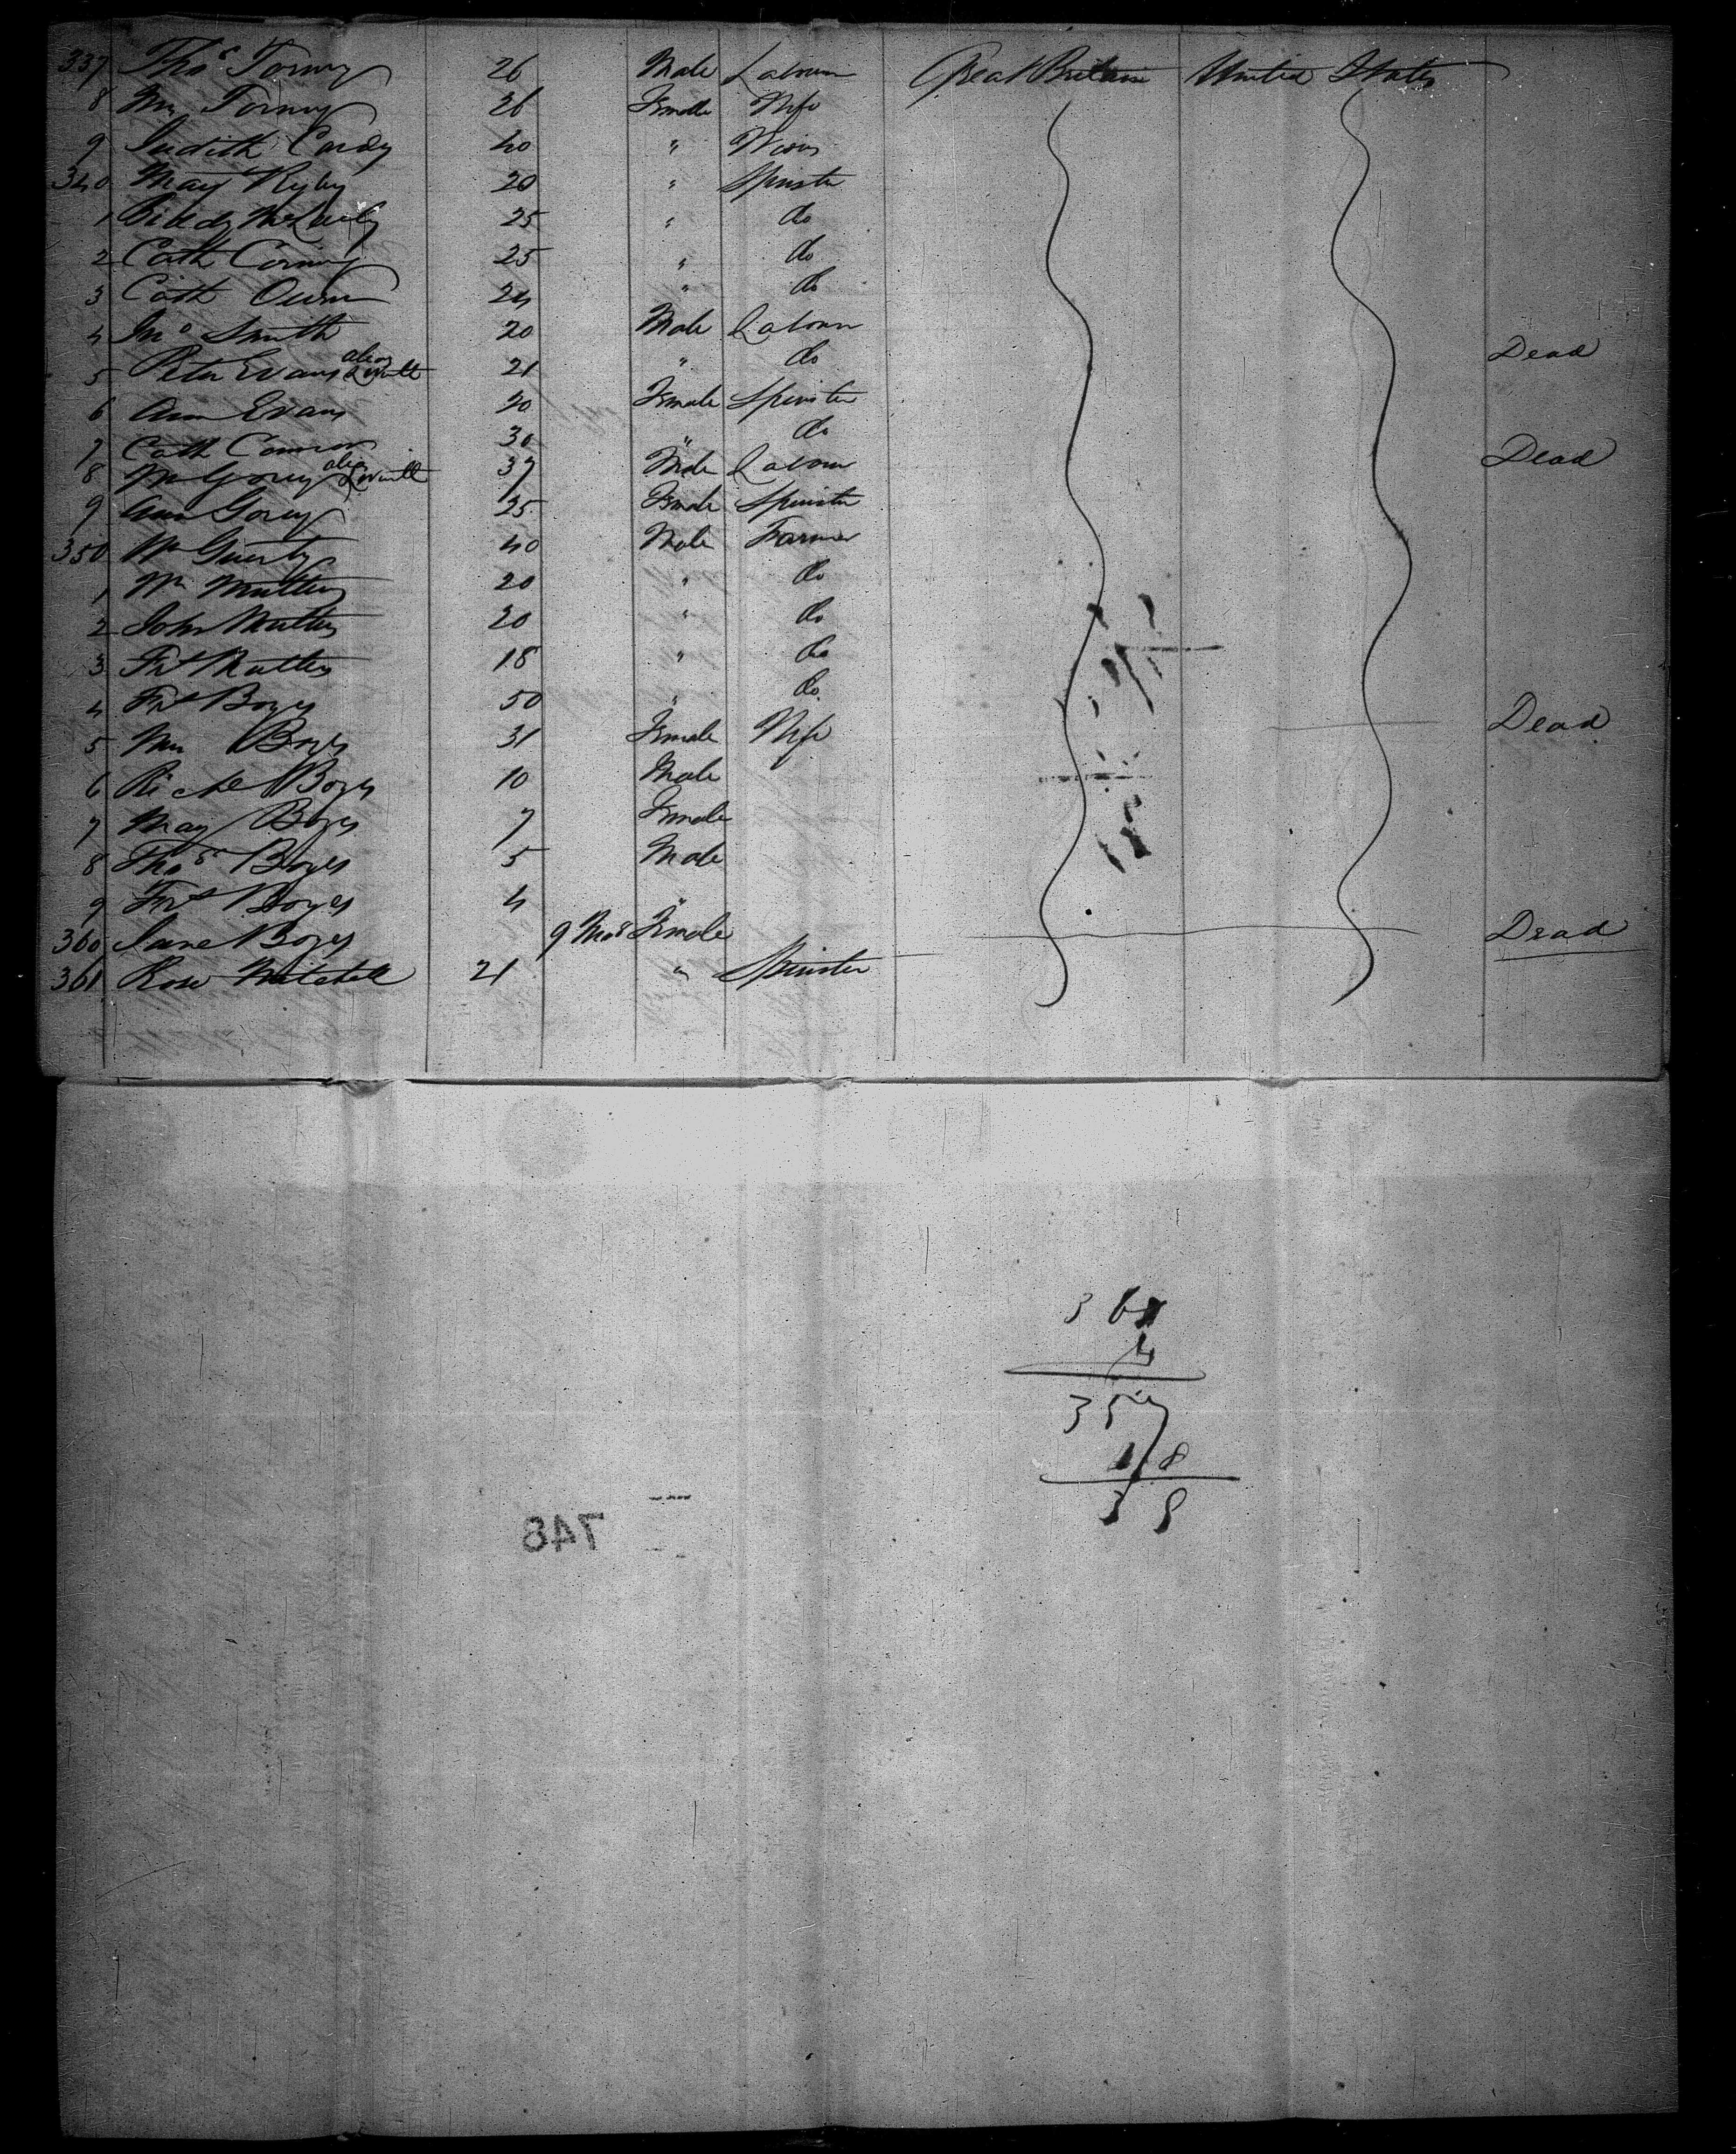 337 Thos Torney 26 Male Labourer Great Britain United States
8 Mrs Torney 26 Female Wife
9 Judith Cardy 40 " Widow
340 Mary Ryley 20 " Spinster
1 Biddy 25 " do
2 Cath Corning 25 " do
3 Cath Owen 24 " do
4 Jno Smith 20 Male Labourer
5 Peter Evans alias 21 " do Dead
6 Ann Evans 20 Female Spinster
7 Cath Connor 30 " do
8 Wm Gorey alias 37 Male Labour Dead
9 Ann Gorey 25 Female Spinster
350 Wm 40 Male Farmer
1 Wm Mutters 20 " do
2 John Mutters 20 " do
3 Frs Mutters 18 " do
4 Frs Boyes 50 " do
5 Mrs Boyes 31 Female Wife Dead
6 Richd Boyes 10 Male
7 Mary Boyes 7 Female
8 Thos Boyes 5 Male
9 Frs Boyes 4 "
360 Jane Boyes 9 Mos Female Dead
361 Rose Mitchell 21 " Spinster
361
4
357
18
3 9
748